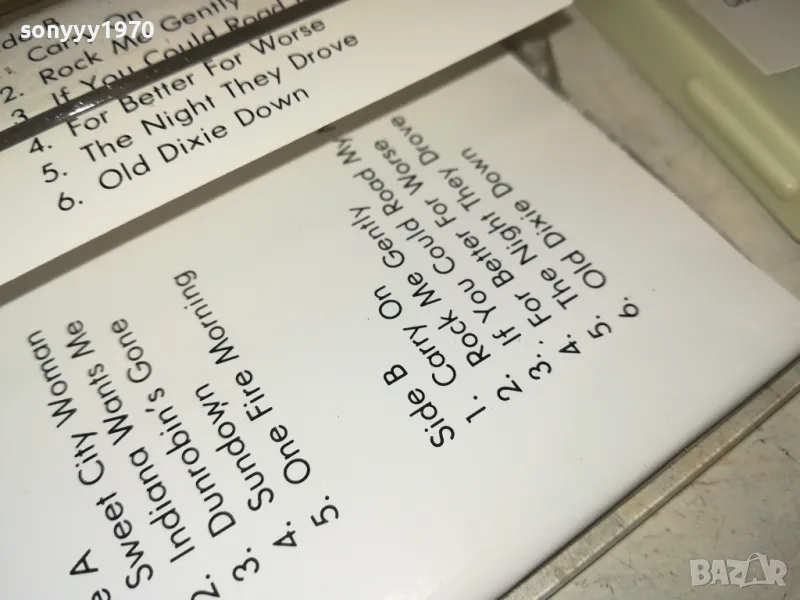 sonyyy1970
Side B
1. Carry On
2. Rock Me Gently
3. If You Could Road
4. For Better For Worse
5. The Night They Drove
6. Old Dixie Down
e A
Sweet City Woman
2. Indiana Wants Me
3. Dunrobin's Gone
4. Sundown
5. One Fire Morning
Side B
1. Carry On
2. Rock Me Gently
3. . If You Could Road My
4. For Better For Worse
5. The Night They Drove
6. Old Dixie Down
BAZAR